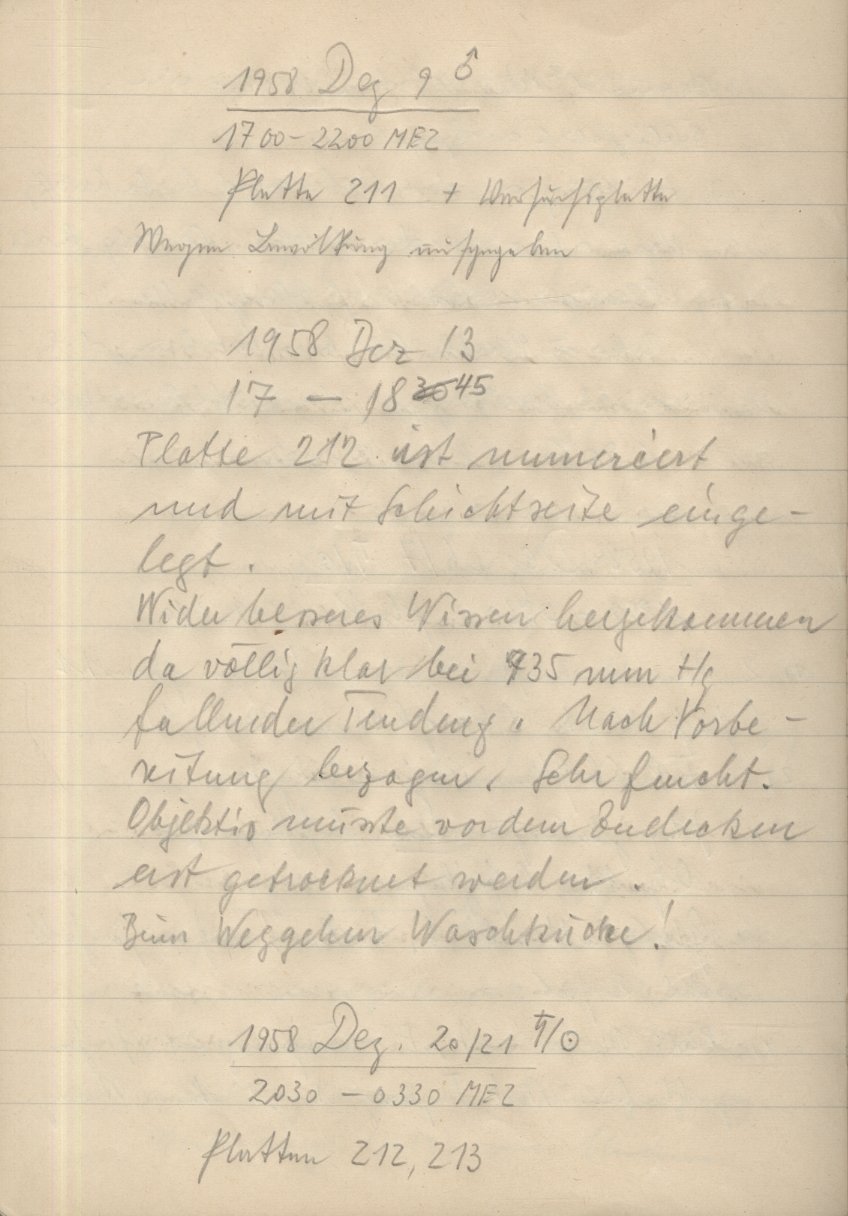 1958 Dez 9 ♂
1700 – 2200 MEZ
Platte 211 + Versuchsplatte
Wegen Bewölkung aufgegeben
1958 Dez 13
17 – 18 30 45
Platte 212 ist numeriert
und mit Schichtseite einge-
legt.
Wider besseres Wissen hergekommen
da völlig klar bei 735 mm Hg
fallender Tendenz. Nach Vorbe-
reitung bezogen, Sehr feucht.
Objektiv musste vor dem Zudecken
erst getrocknet werden.
Beim Weggehen Waschküche!
1958 Dez. 20/21 ♄/☉
2030 – 0330 MEZ
Platten 212, 213